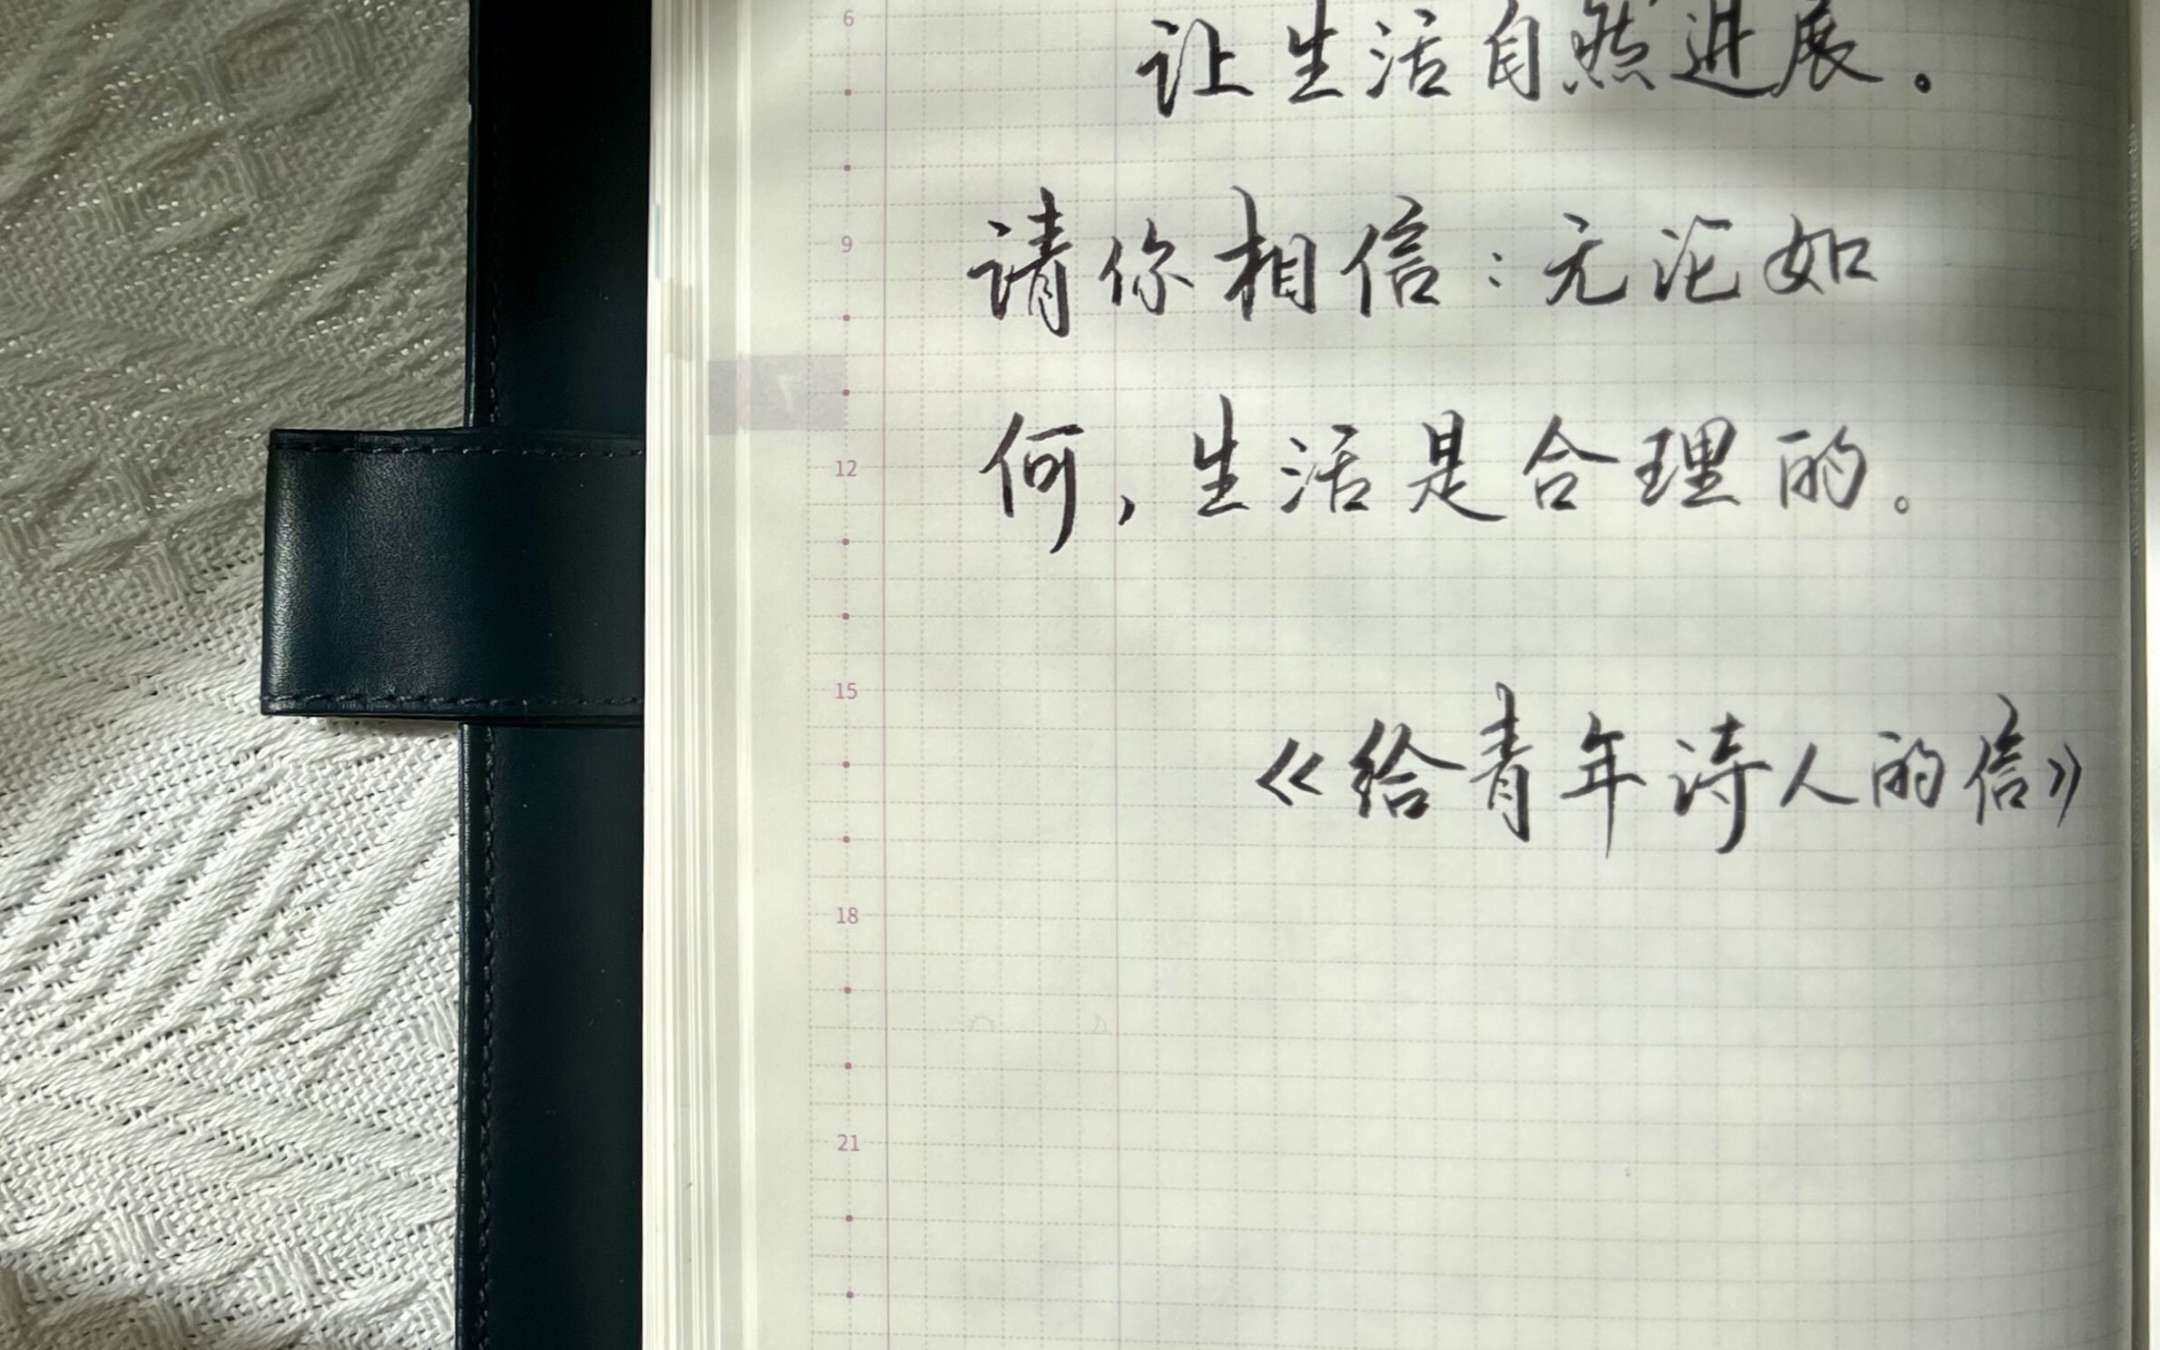 6
让生活自然进展。
9
请你相信：无论如
12
何，生活是合理的。
15
《给青年诗人的信》
18
21